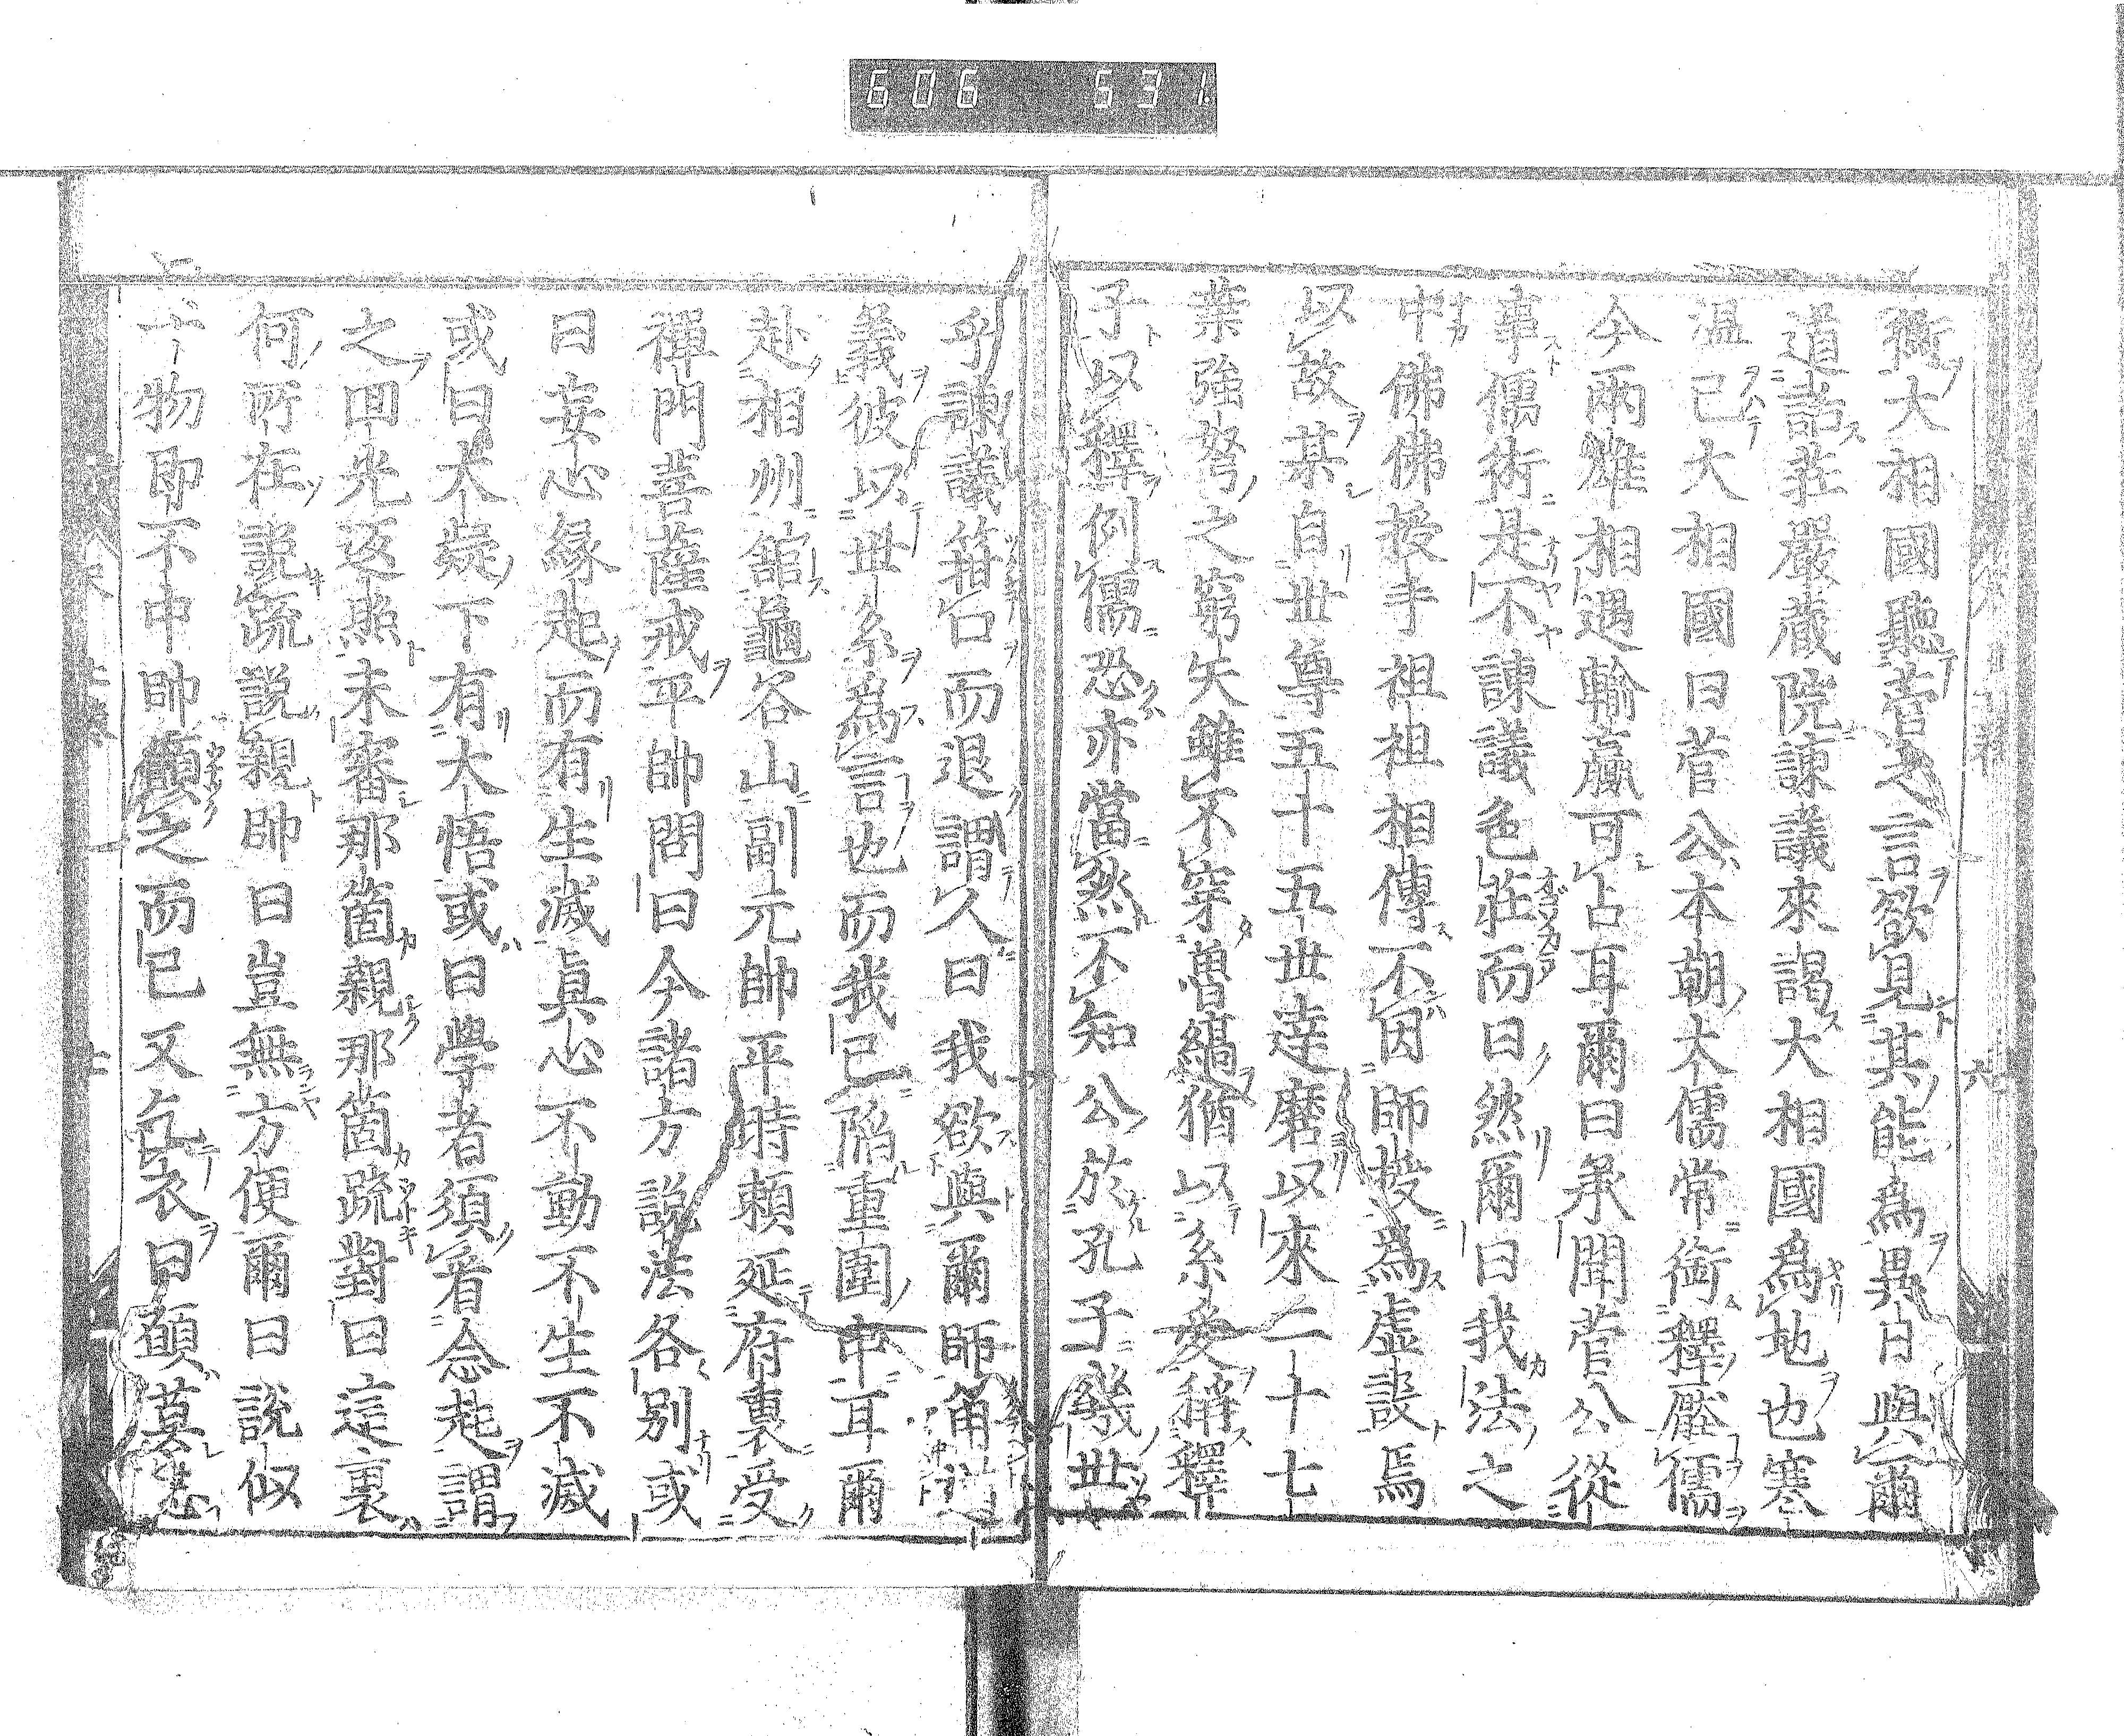 606 531
術大相國聽菅之言欲見其能爲異日與爾
道詣莊嚴藏院諫議來謁大相國爲地也寒
温已大相國曰菅公本朝大儒常衘釋壓儒
今兩雄相遇輸贏可占耳爾曰承聞菅公從
事儒術是不諫議色莊而曰然爾曰我法之
中佛佛授手祖祖相傳不因師授爲虚設焉
以故某自世尊五十五世達磨以來二十七
葉強弩之窮矢雖不穿魯縞猶以系忝稱釋
子以釋例儒恐亦當然不知公於孔子幾世
乎諫議箝口而退謂人曰我欲與爾師角
義彼以世系爲言也而我已陷重圍中耳爾
赴相州舘龜谷山副元帥平時頼延府裏受
禪門菩薩戒平帥問曰今諸方説法各別或
曰妄心縁起而有生滅眞心不動不生不滅
或曰大疑下有大悟或曰學者須看念起謂
之囘光返照未審那箇親那箇疏對曰這裏
何所在説疏説親帥曰豈無方便爾曰説似
一物即不中帥頷之而已又付衣曰顧莫忘
六